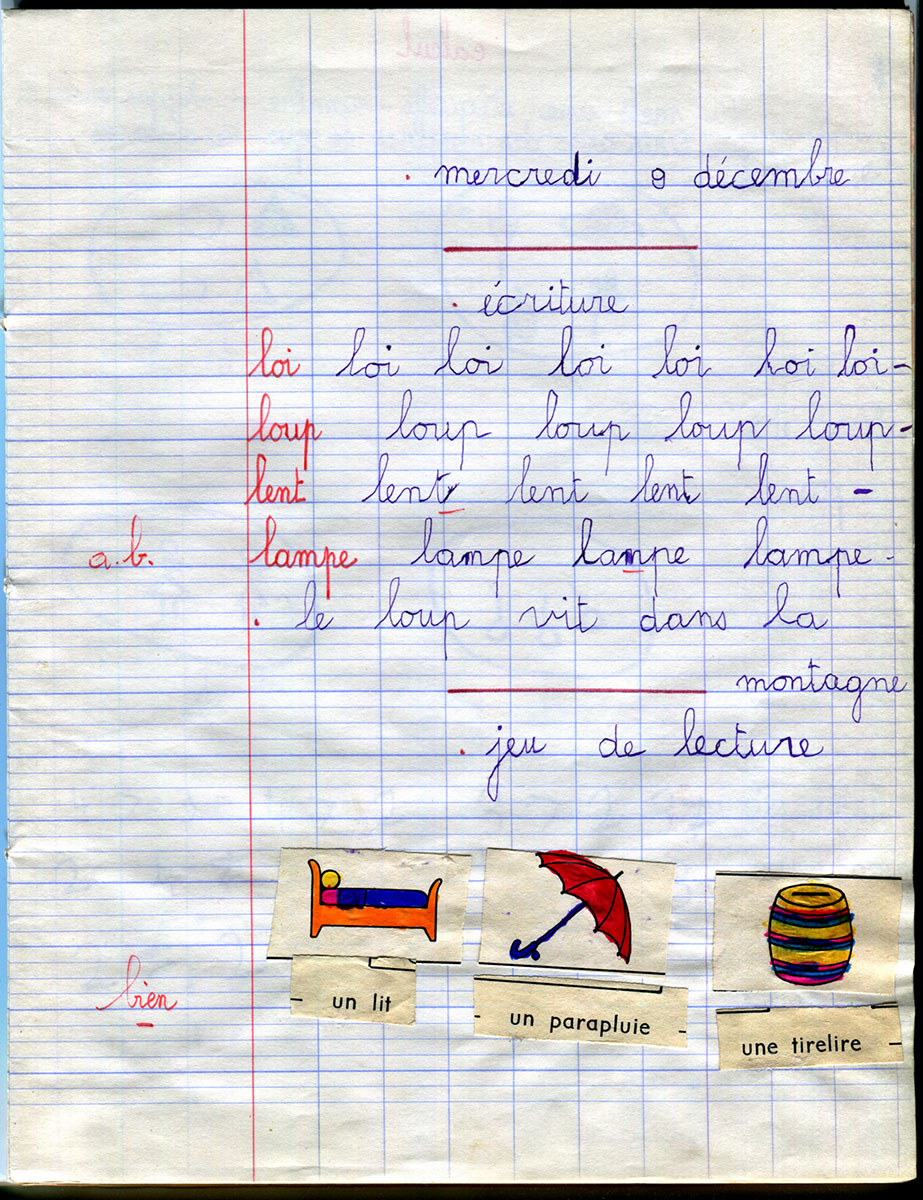 mercredi 9 décembre
écriture
loi loi loi loi loi loi loi-
loup loup loup loup loup-
lent lent lent lent lent -
a.b. lampe lampe lampe lampe-
le loup vit dans la
montagne
jeu de lecture
bien
- un lit
- un parapluie -
une tirelire -